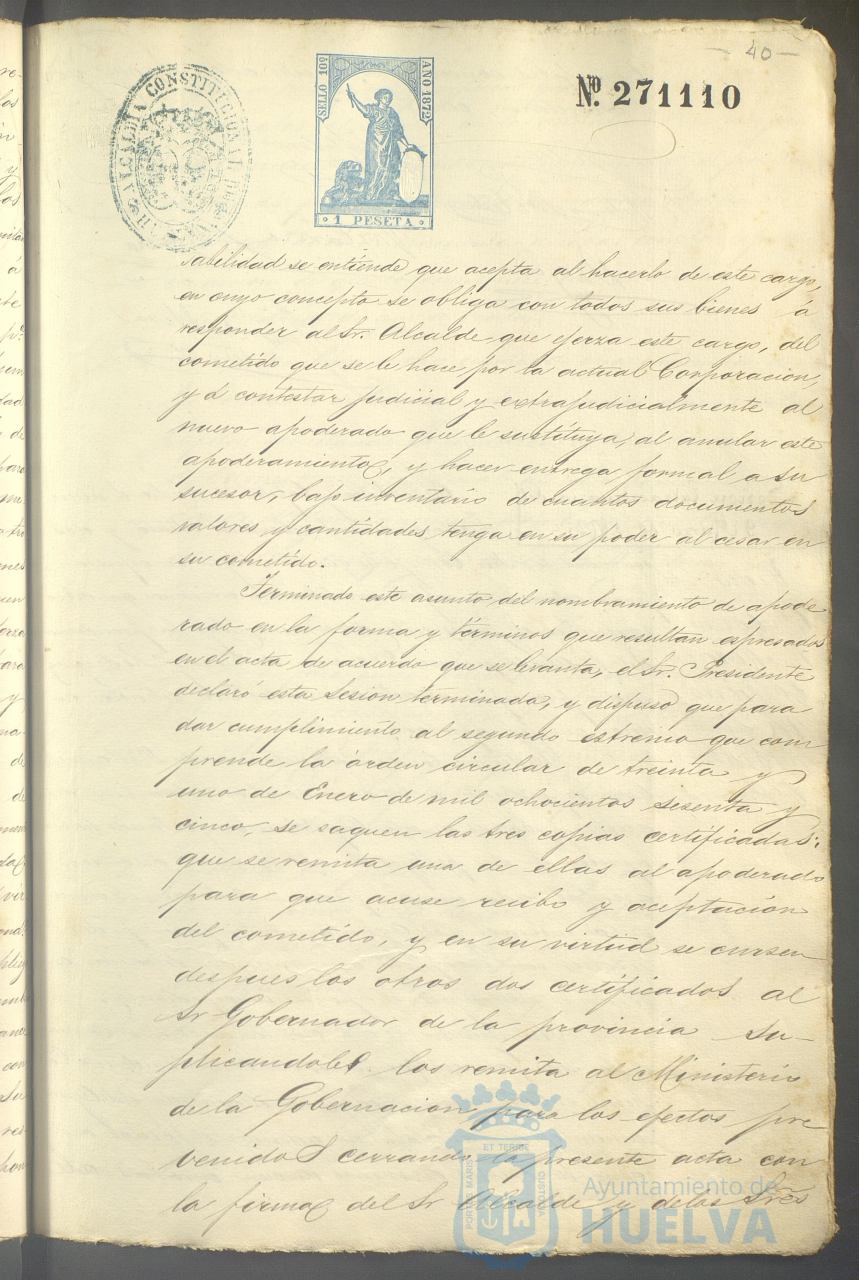 — 40 —
ALCALDIA CONSTITUCIONAL
SELLO 10º
AÑO 1872
1 PESETA
Nº. 271110
sabilidad se entiende que acepta al hacerlo de este cargo,
en cuyo concepto se obliga con todos sus bienes á
responder al Sr. Alcalde que ejerza este cargo, del
cometido que se le hace por la actual Corporacion,
y á contestar judicial y extrajudicialmente al
nuevo apoderado que le sustituya, al anular este
apoderamiento, y hacer entrega formal a su
sucesor, bajo inventario de cuantos documentos
valores y cantidades tenga en su poder al cesar en
su cometido.
Terminado este asunto del nombramiento de apode
rado en la forma y términos que resultan espresados
en el acta de acuerdo que se levanta, el Sr. Presidente
declaró esta Sesion terminada, y dispuso que para
dar cumplimiento al segundo estremo que com
prende la órden circular de treinta y
uno de Enero de mil ochocientos sesenta y
cinco, se saquen las tres copias certificadas;
que se remita una de ellas al apoderado
para que acuse recibo y aceptacion
del cometido, y en su virtud se cursen
despues los otros dos certificados al
Sr Gobernador de la provincia su-
plicandole los remita al Ministerio
de la Gobernacion para los efectos pre
venidos cerrando la presente acta con
la firma del Sr Alcalde y de los Sres
PORTUS MARIS ET TERRE CUSTODIA
Ayuntamiento de
HUELVA